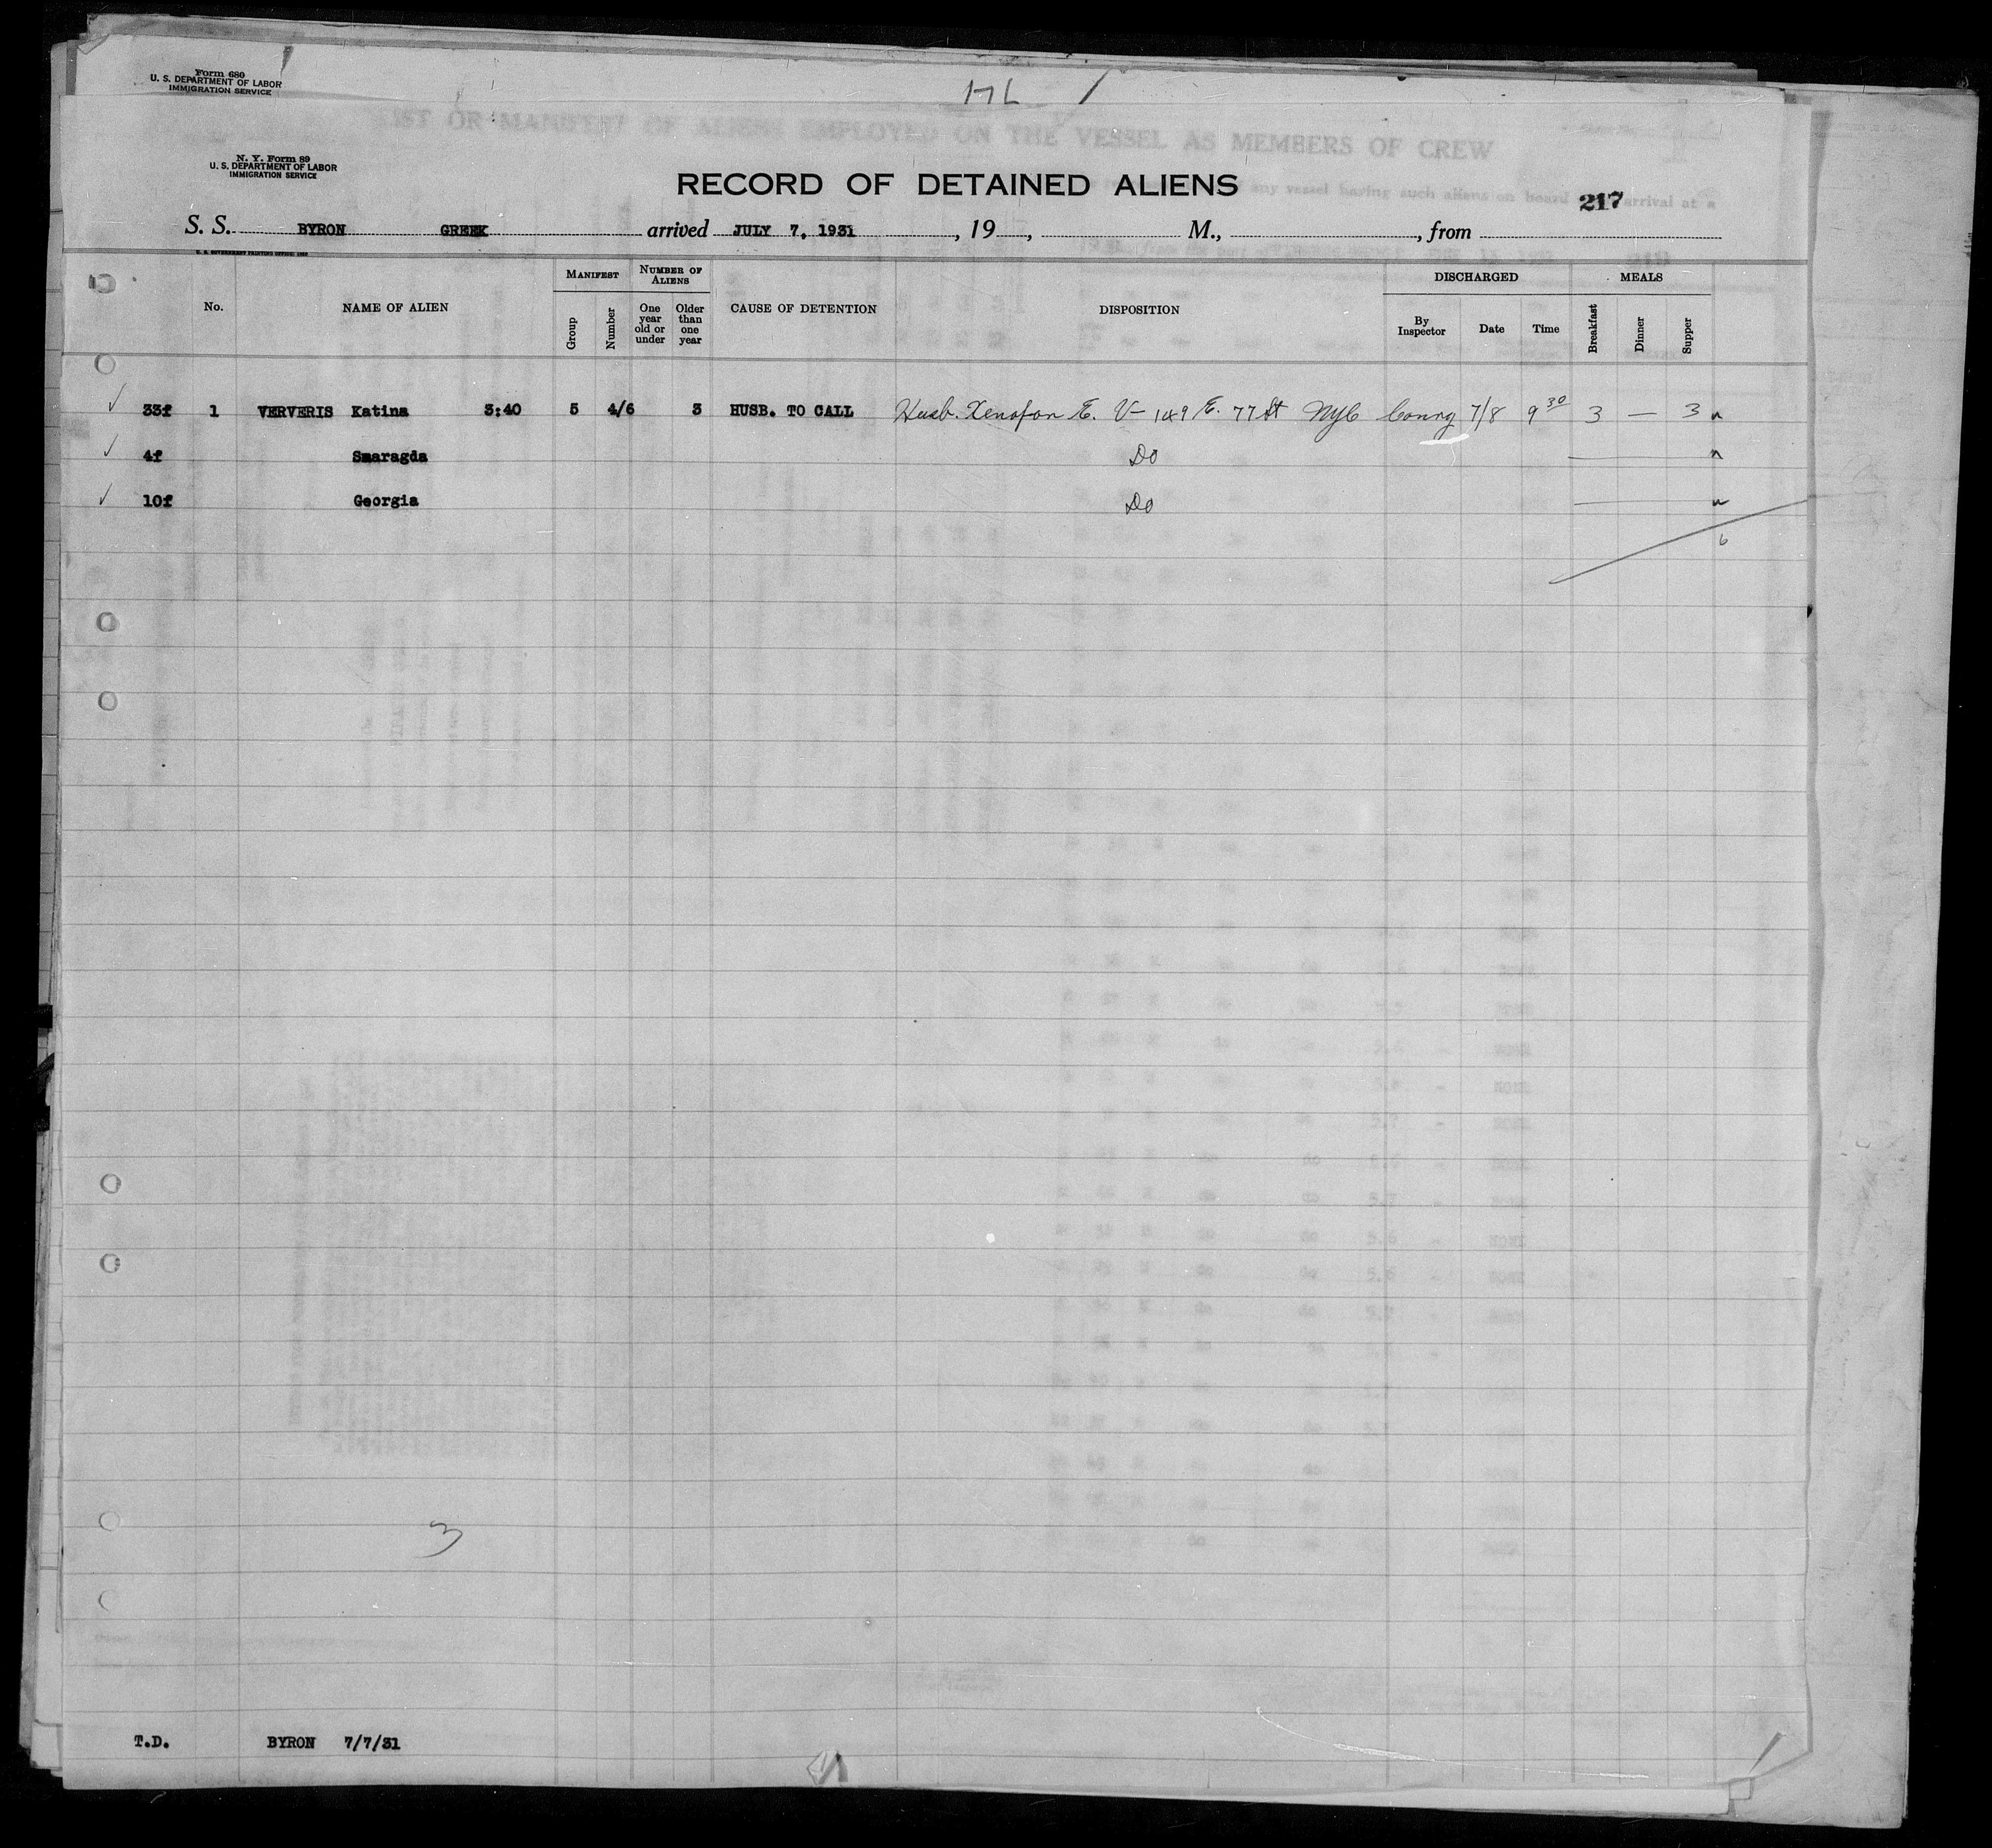 Form 680
U. S. DEPARTMENT OF LABOR
IMMIGRATION SERVICE
LIST OR MANIFEST OF ALIENS EMPLOYED ON THE VESSEL AS MEMBERS OF CREW
N. Y. Form 89
U. S. DEPARTMENT OF LABOR
IMMIGRATION SERVICE
any vessel having such aliens on board arrival at a
RECORD OF DETAINED ALIENS
217
S. S. BYRON GREEK arrived JULY 7, 1931, 19 , M., , from
U. S. GOVERNMENT PRINTING OFFICE
MANIFEST NUMBER OF ALIENS DISCHARGED MEALS
No. NAME OF ALIEN Group Number One year old or under Older than one year CAUSE OF DETENTION DISPOSITION By Inspector Date Time Breakfast Dinner Supper
33f 1 VERVERIS Katina 3:40 5 4/6 3 HUSB. TO CALL Husb. Xenofon E. V- 149 E. 77 St NYC 7/8 9 30 3 — 3
4f Smaragda Do
10f Georgia Do
6
3
T.D. BYRON 7/7/31